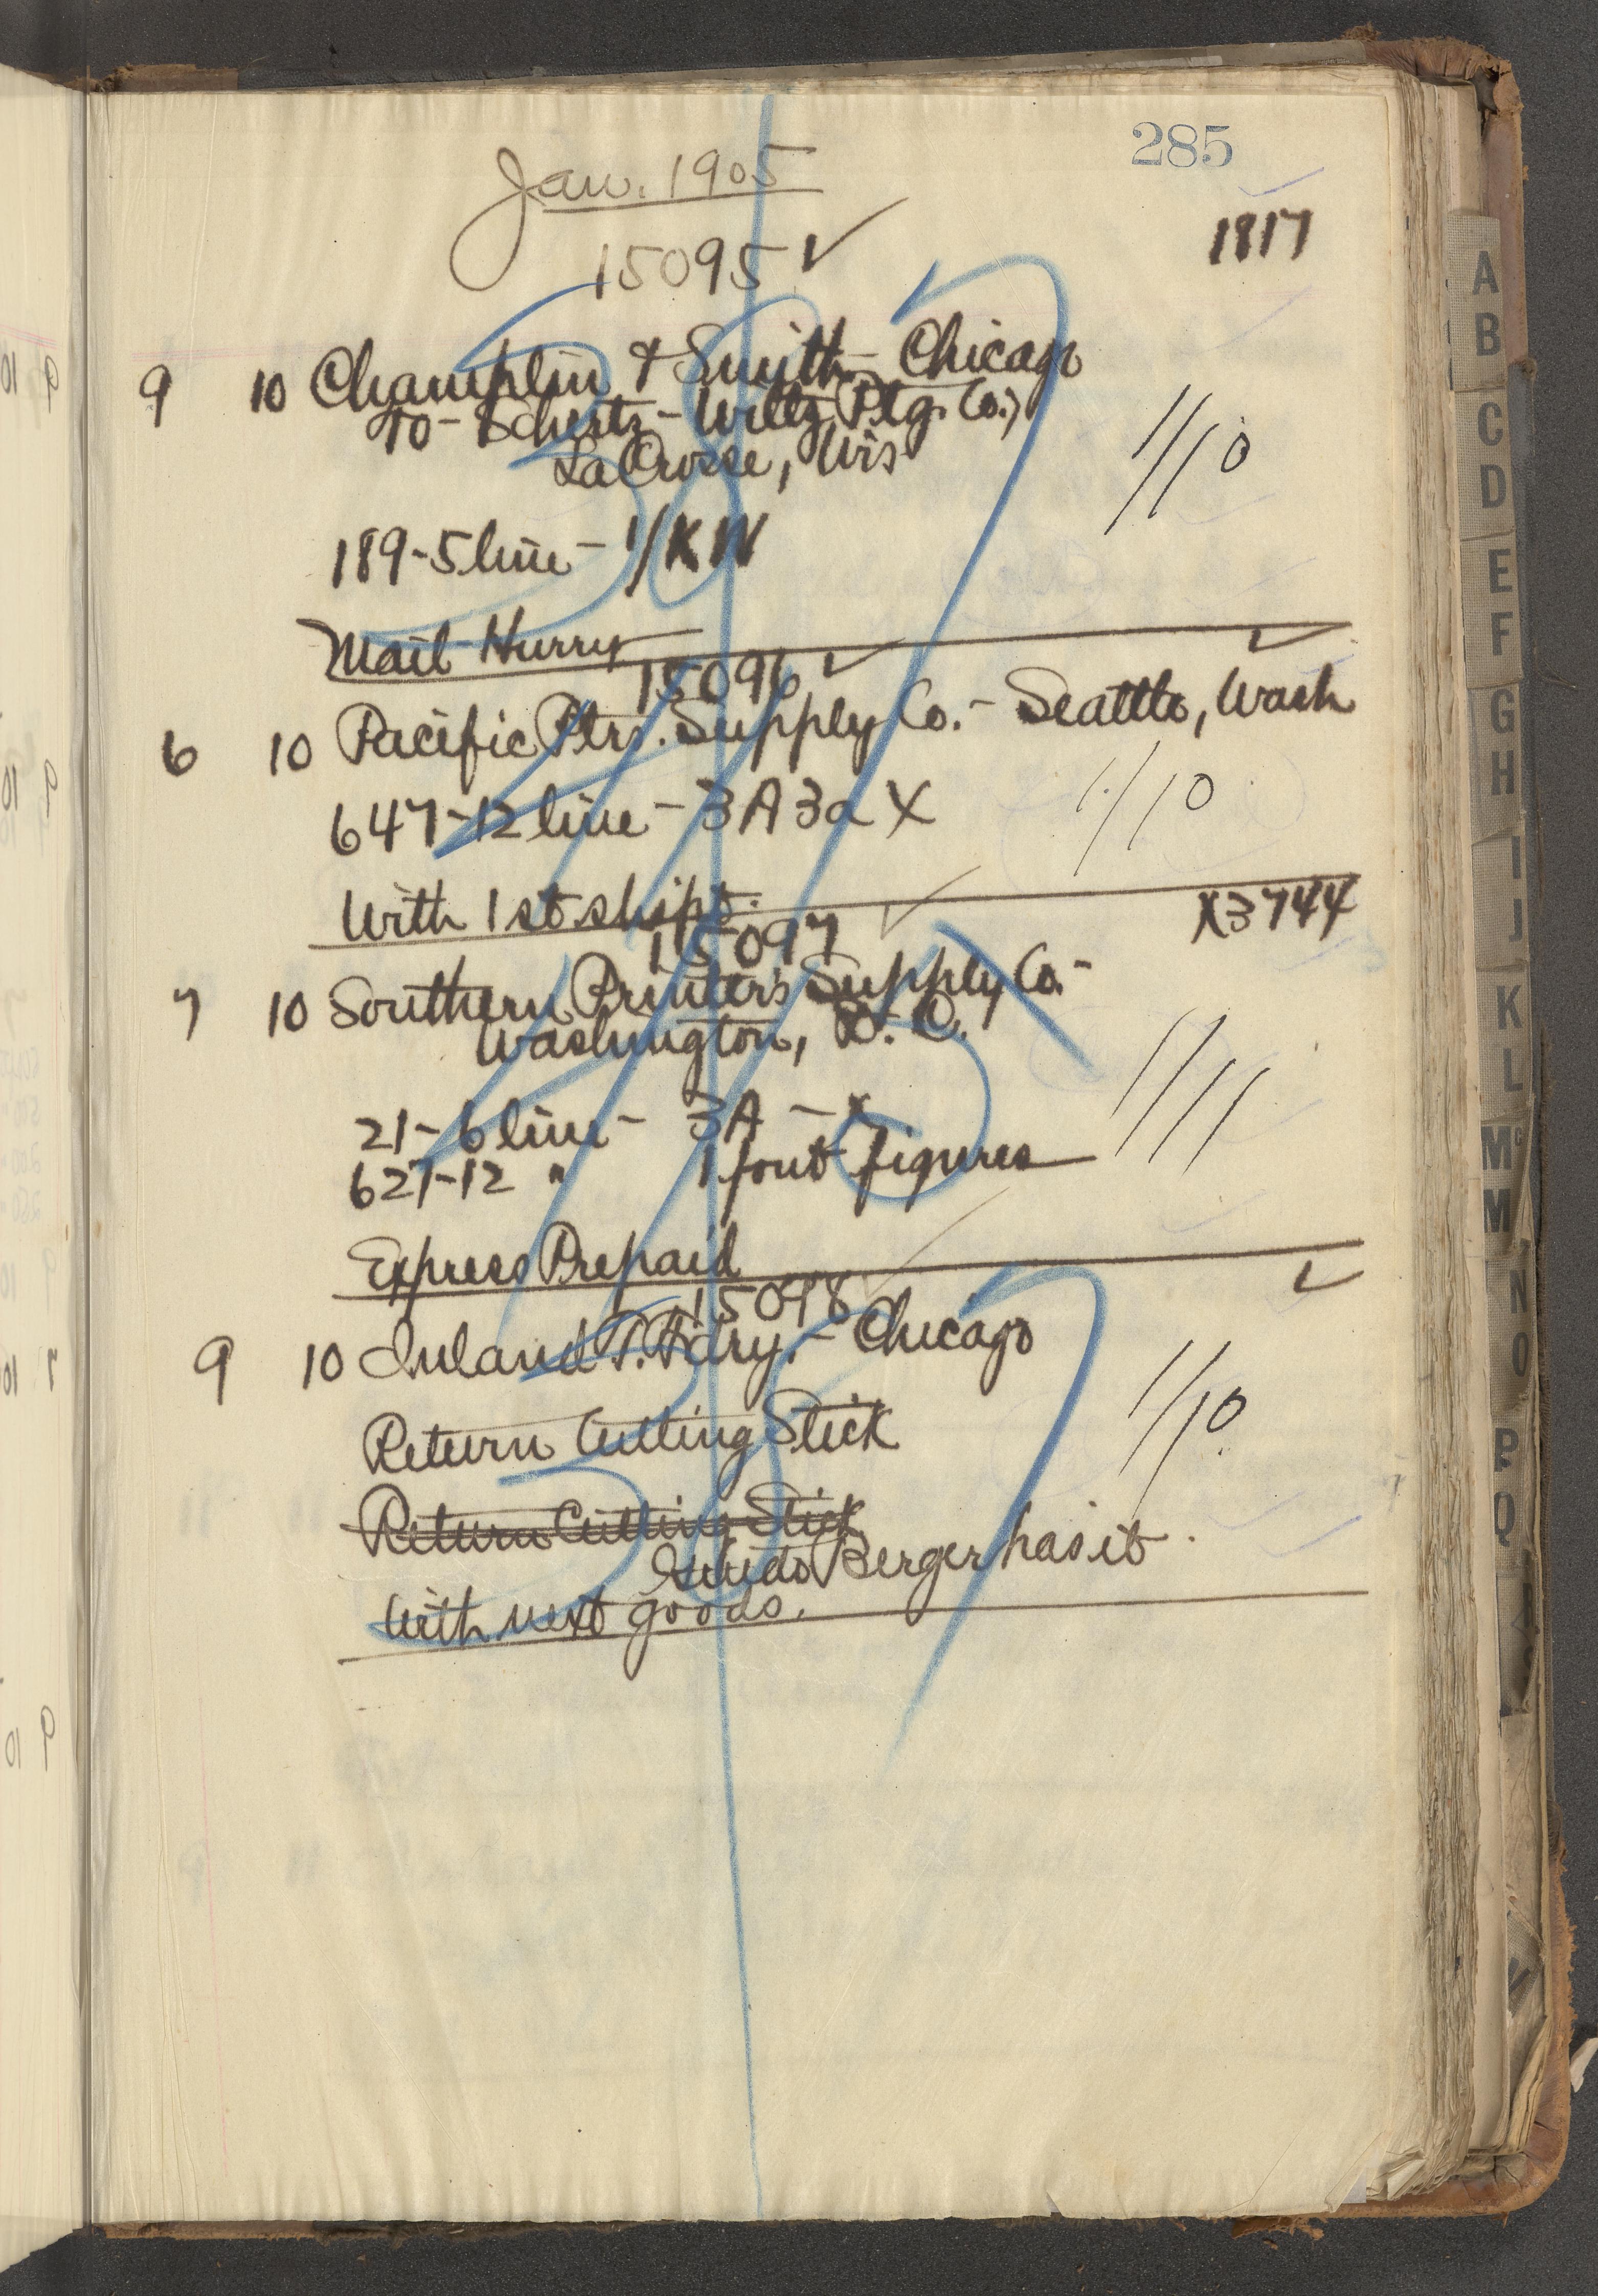 285
Jan. 1905
1817
15095 ✓
9 10 Champlin & Smith - Chicago
to - Schertz - Wiltz Ptg. Co.,
LaCrosse, Wis
1/10
189-5 line - 1/KW
Mail Hurry
15096 ✓
6 10 Pacific Ptrs. Supply Co. - Seattle, Wash
647-12 line - 3A 3a X
1/10
With 1st shipt.
15097 ✓
X3744
7 10 Southern Printer's Supply Co. -
Washington, D. C.
1/11
21-6 line - 3A - X
627-12 " 1 font figures
Express Prepaid
15098
9 10 Inland T. Fdry. - Chicago
1/10
Return Cutting Stick
Return Cutting Stick
Guido Berger has it.
With next goods.
A
B
C
D
E
F
G
H
I
J
K
L
Mc
M
N
O
P
Q